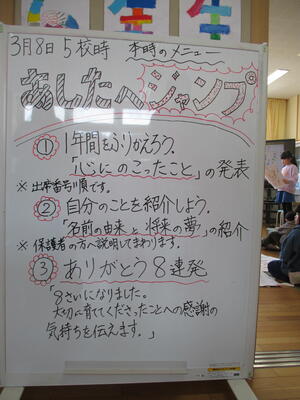 生生
3月8日 5校時 本時のメニュー
あしたへジャンプ
① 1年間をふりかえろう.
「心にのこったこと」の発表
※ 出席番号順です。
② 自分のことを紹介しよう.
「名前の由来と将来の夢」の紹介
※ 保護者の方へ説明してまわります。
③ ありがとう8連発
「8さいになりました。
大切に育ててくださったことへの感謝の
気持ちを伝えます。」